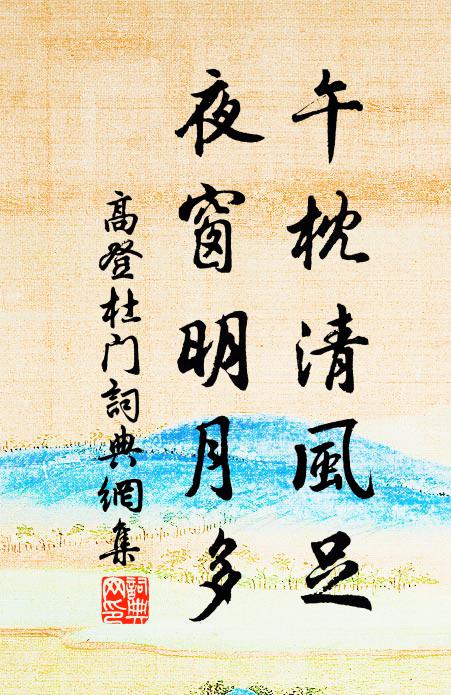 午枕清風足
夜窗明月多
高登杜门詞典網集
詞典
网印